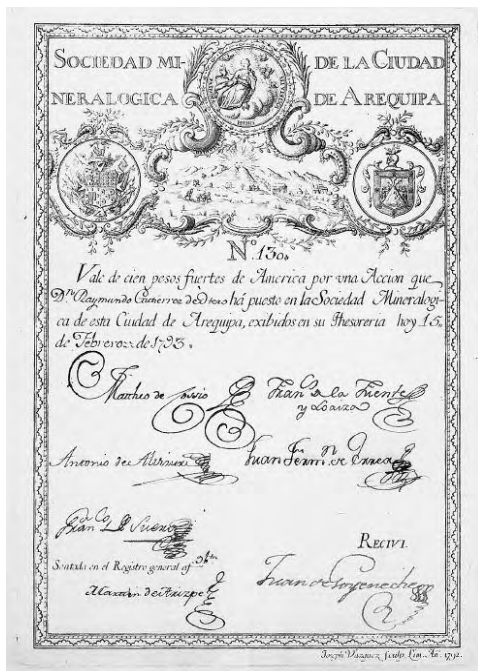 SOCIEDAD MI- DE LA CIUDAD
NERALOGICA DE AREQUIPA
Nº 130.
Vale de cien pesos fuertes de America por vna Accion que
Dn. Raymundo Gutierrez de Otero há puesto en la Sociedad Mineralogi-
ca de esta Ciudad de Arequipa, exibidos en su Thesoreria hoy 15.
de Febrero de 1793.
Mattheo de Cossio Franco. de la Fuente
y Loaiza
Antonio de Juan Fermn. de Errea
Franco.
RECIVI.
Sentada en el Registro general af
Juan de Goyeneche
de Arizpe
Joseph Vazquez sculp. Lim. Añ. 1792.